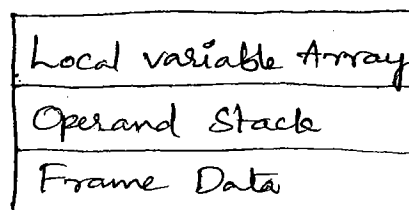 Local variable Array
Operand Stack
Frame Data